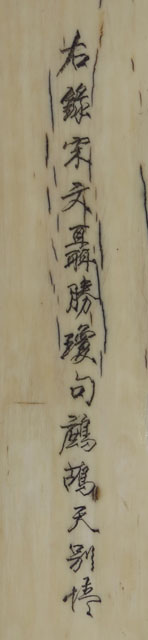 右錄宋文聶勝瓊句鷓鴣天別情